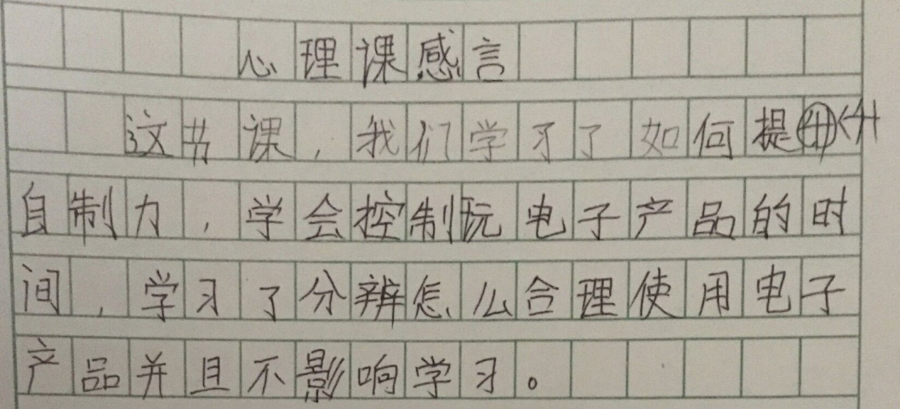 心理课感言
这节课，我们学习了如何提升
自制力，学会控制玩电子产品的时
间，学习了分辨怎么合理使用电子
产品并且不影响学习。